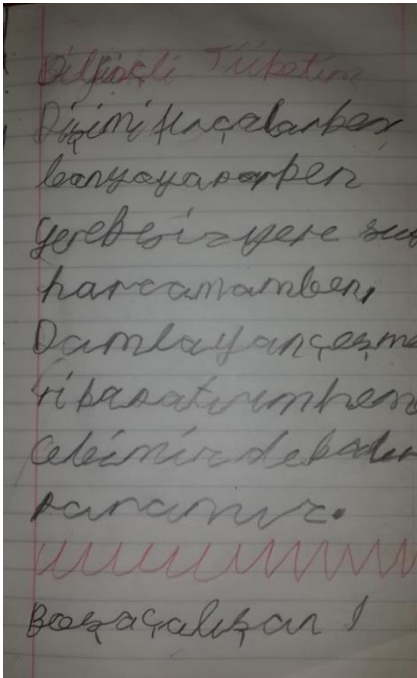 Bilinçli Tüketim
Dişimi fırçalarken
banyoyaparken
gereksizyere su
harcamamben,
Damlayançeşme
Cebimizdekalır
paramız.
Boşaçalışan !